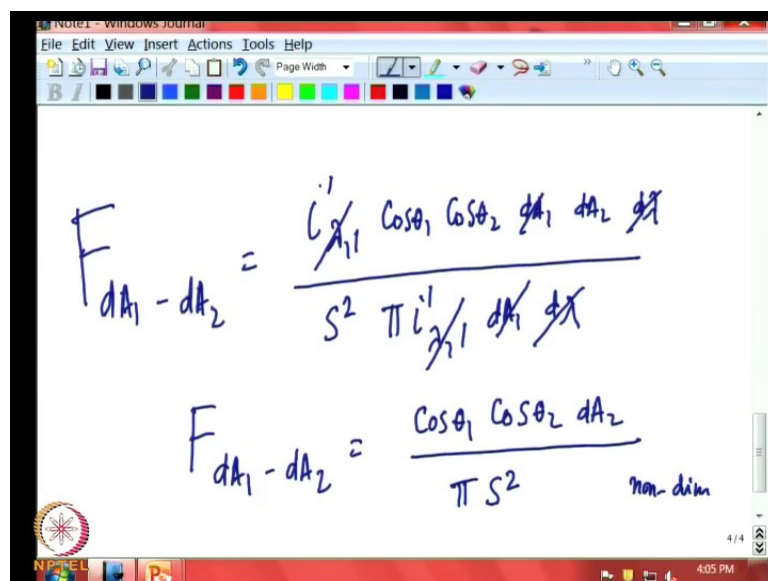 Note1 - Windows Journal
File Edit View Insert Actions Tools Help
Page Width
B I
F dA₁ - dA₂ = i'λ,1 cosθ₁ cosθ₂ dA₁ dA₂ dλ / S² π i'λ,1 dA₁ dλ
F dA₁ - dA₂ = cosθ₁ cosθ₂ dA₂ / π S²
non-dim
4/4
NPTEL
4:05 PM